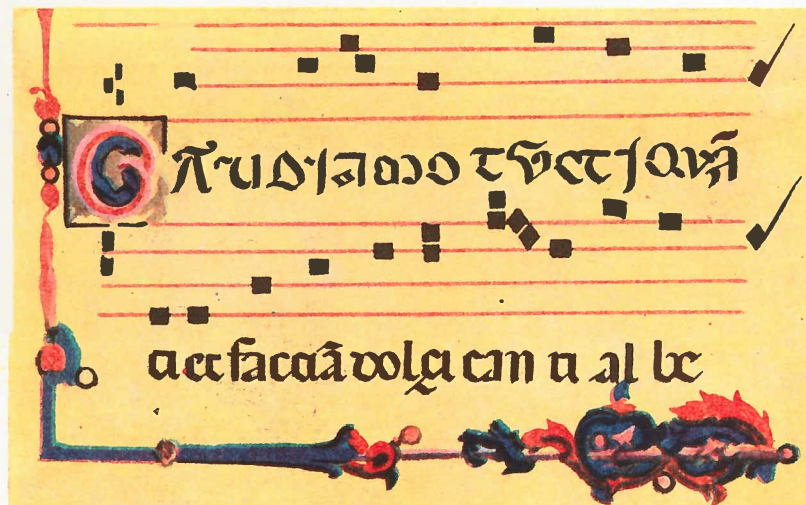 GAUDIAMO TUCTI QUÃ
ti et facciā dolçi canti al be